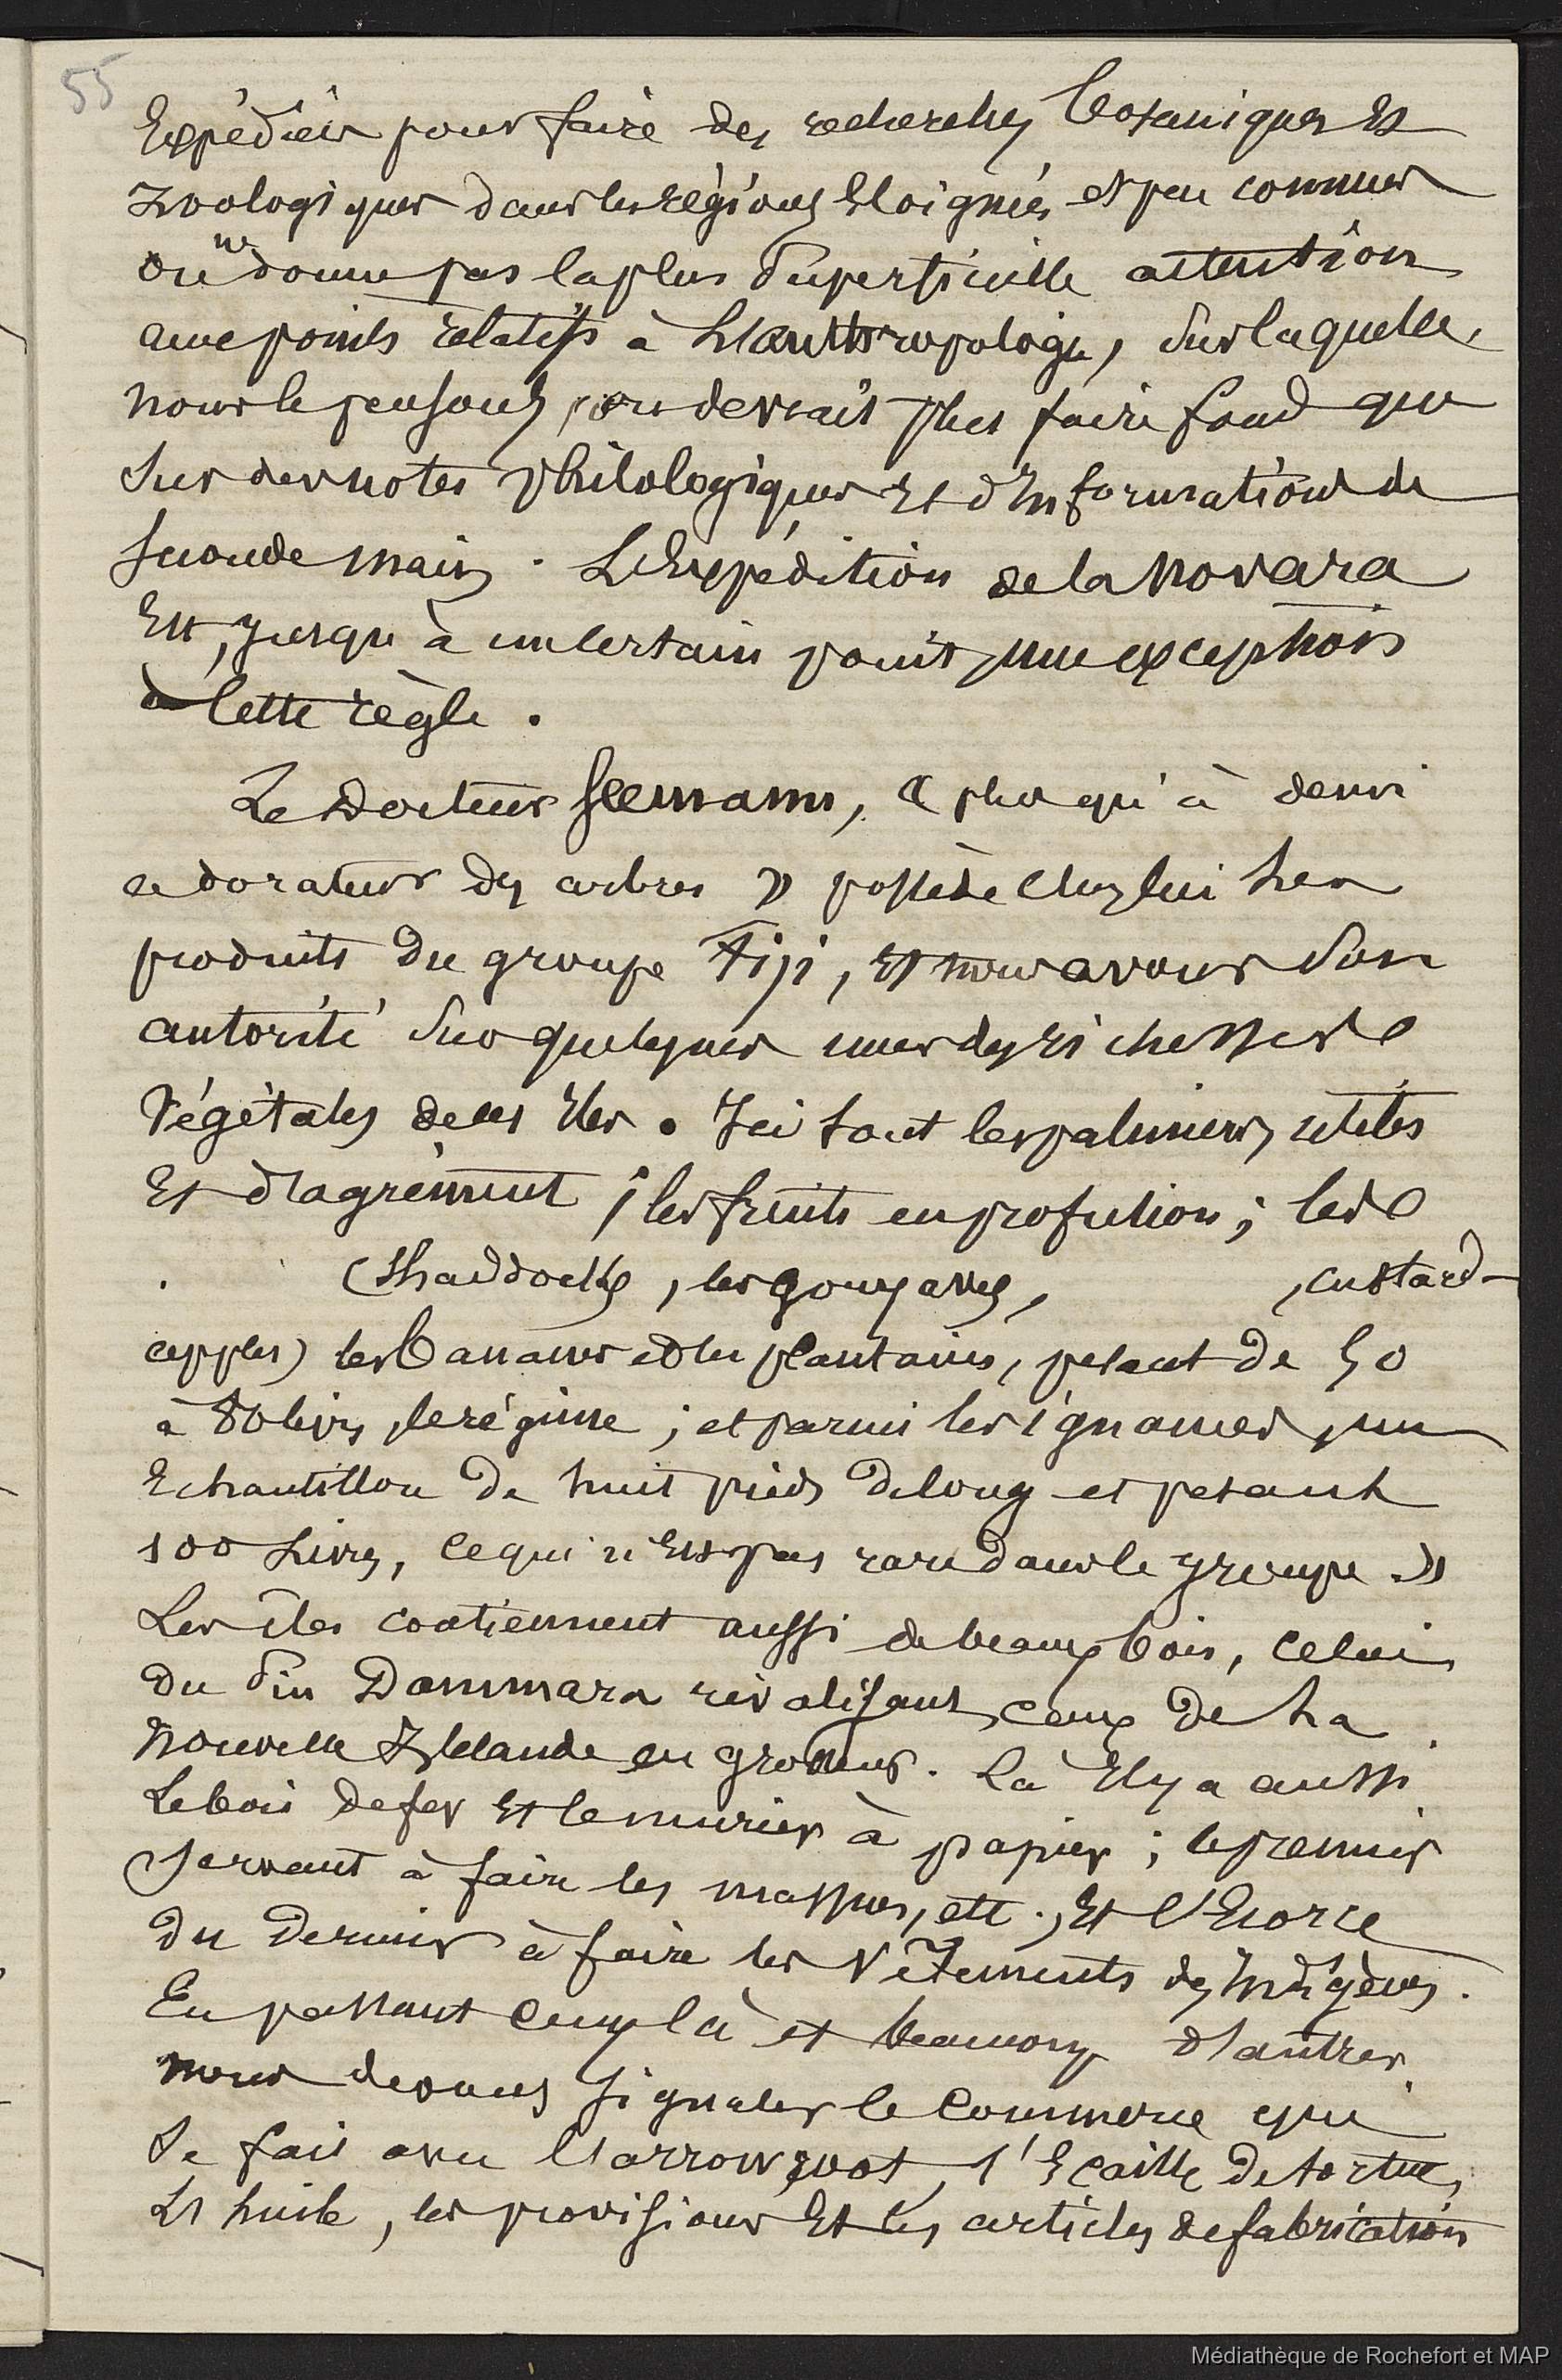 55
Expédiés pour faire des recherches botaniques Et
zoologiques dans les régions Eloignées et peu connues
on ne donne pas la plus superficielle attention
aux points relatifs à L'anthropologie, sur laquelle,
nous le pensons, on devrait plus faire fond que
sur des notes philologiques Et d'Informations de
seconde main. L'Expédition de la Novara
Est, jusqu'à un certain point, une exception
à cette règle.
Le Docteur Seemann, « plus qu'à demi
adorateur des arbres » possède chez lui Les
produits du groupe Fiji, Et nous avons son
autorité sur quelques unes des richesses
végétales de ces Iles. Ici sont les palmiers utiles
Et d'agrément ; les fruits en profusion ; les
(Shaddocks, les gouyaves, , custard-
apples) les bananes et les plantains, pesant de 50
à 80 livres le régime ; et parmi les ignames, un
Echantillon de huit pieds de long et pesant
100 Livres, ce qui n'Est pas rare dans le groupe. »
Les îles contiennent aussi de beaux bois, celui
du Pin Dammara rivalisant ceux de La
Nouvelle Zélande en grosseur. Là Il y a aussi
Le bois de fer Et le murier à papier ; le premier
servant à faire les massues, etc., Et l'Ecorce
du dernier à faire les vêtements des Indigènes.
En passant ceux là et beaucoup d'autres
nous devons signaler le commerce qui
se fait avec L'arrow root, l'Ecaille de tortue,
L'huile, les provisions Et les articles de fabrication
Médiathèque de Rochefort et MAP